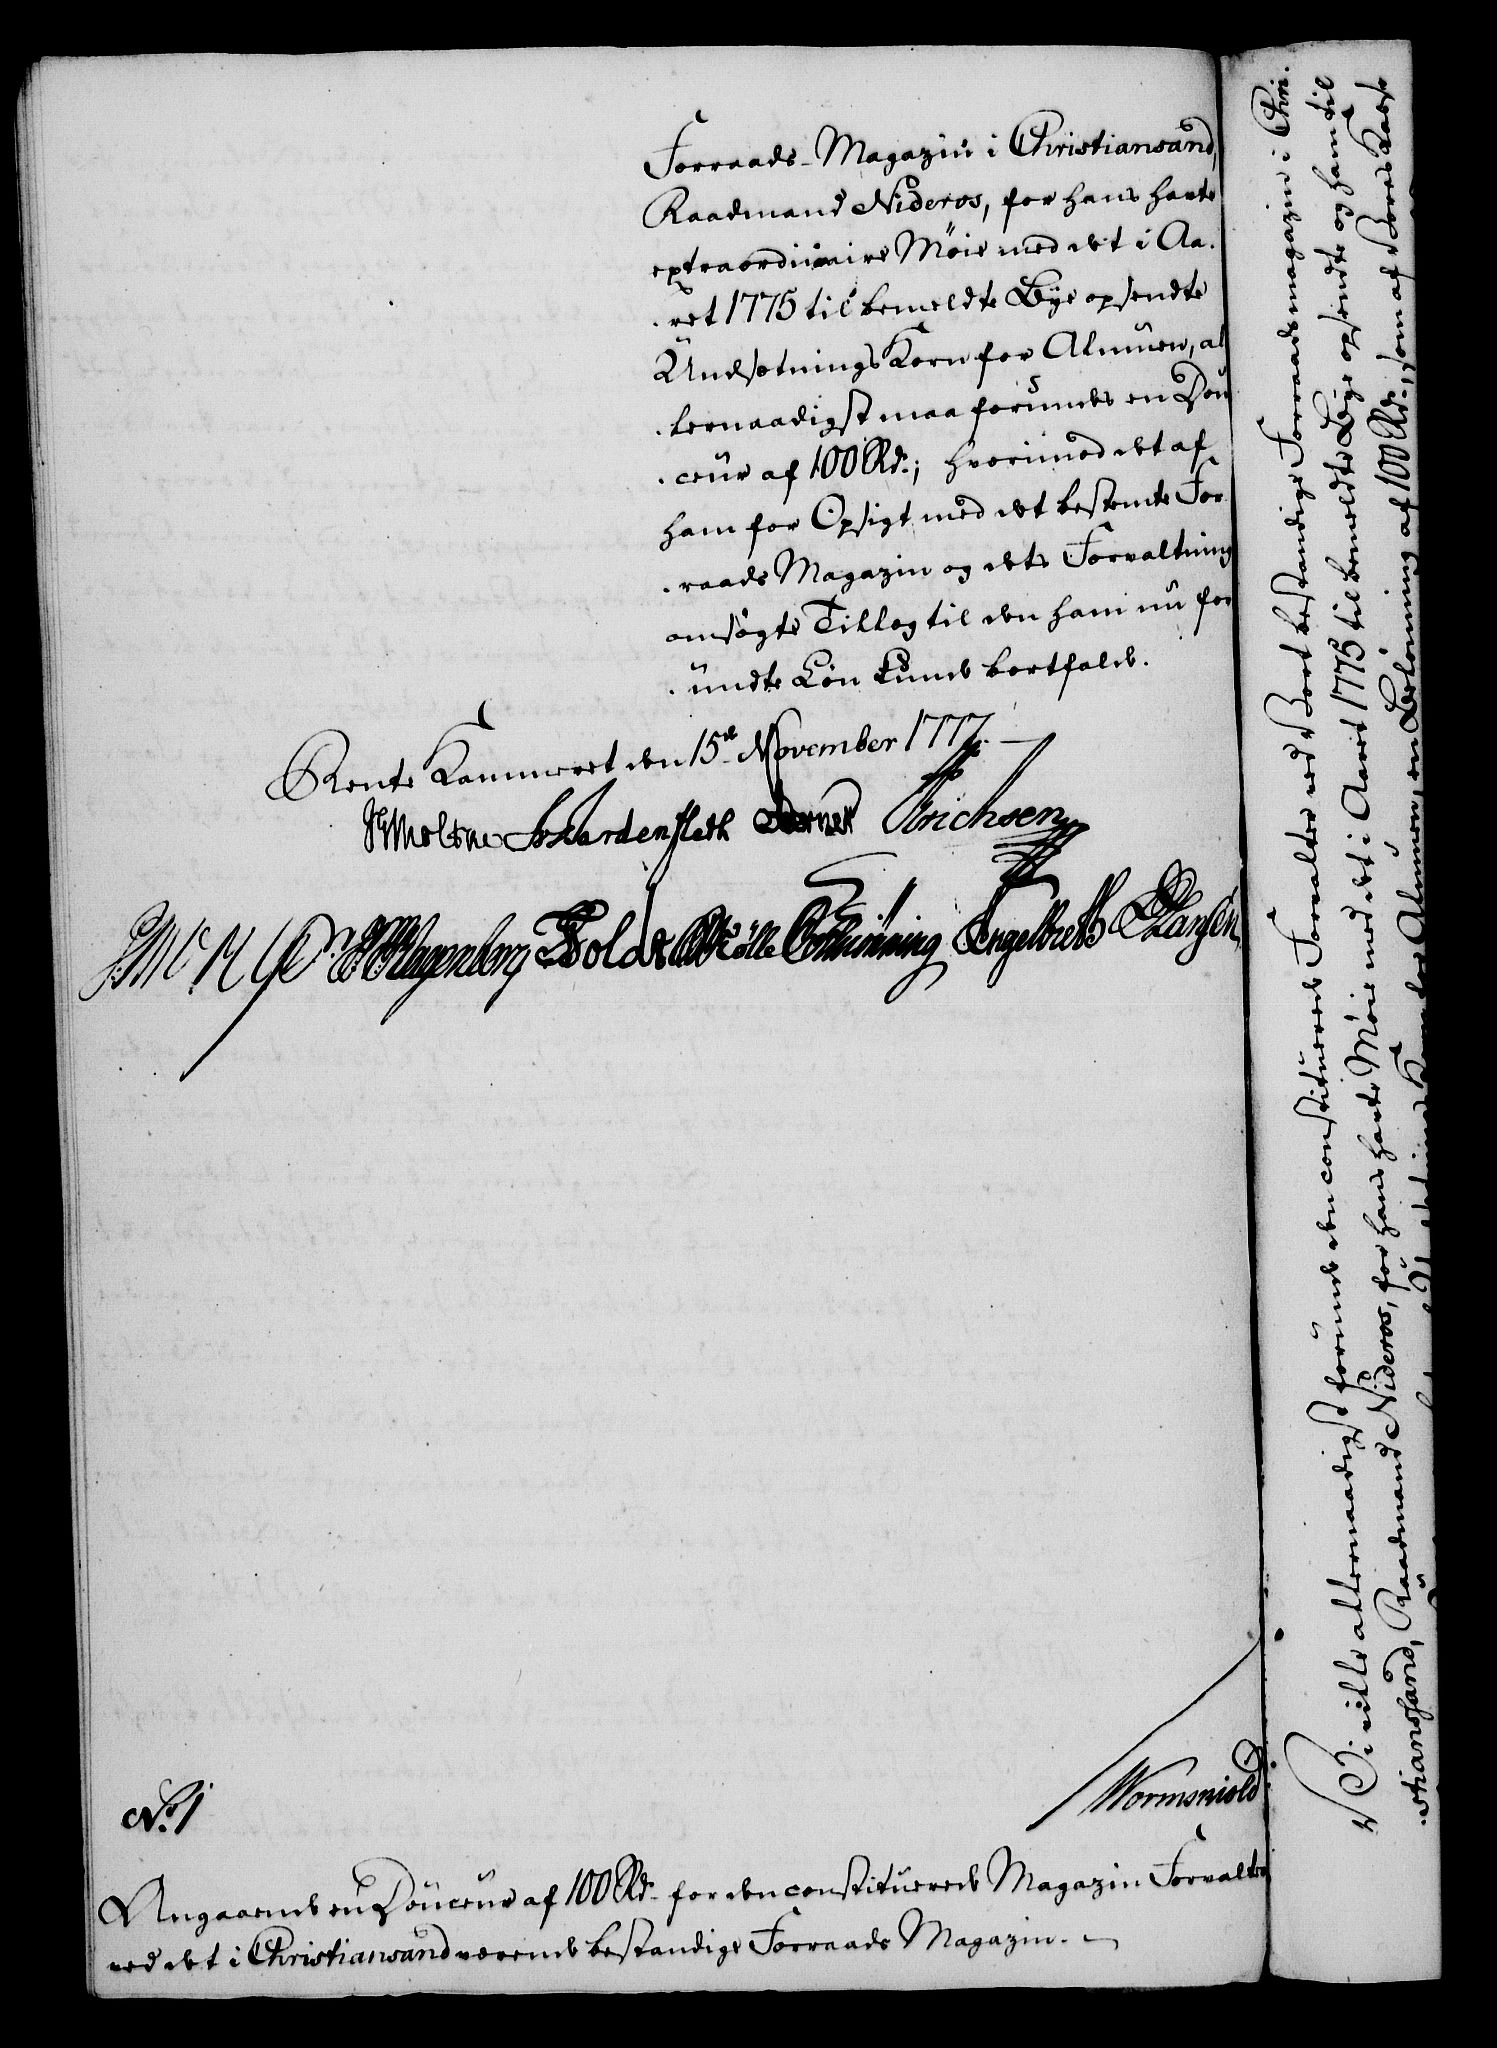 Forraads-Magazin i Christiansand,
Raadmand Nideros, for hans havte
extraordinaire Möie med det i Aa-
ret 1775 til bemeldte Bye opsendte
Undsetnings Korn for Almuen, al-
lernaadigst maa forundes en Dou-
ceur af 100 Rd.; hvorimod det af
ham for Opsigt med det bestemte For-
raads Magazin og dets Forvaltning
ansögte Tillæg til den ham nu for-
undte Lön kunde bortfalde.
Rente Kammeret den 15de November 1777.
Moltke Hardenfleth Erichsen
Klagenberg Selmer Engelbreth Hansen
Wormskiold
No. 1
Angaaende en Douceur af 100 Rd. for den constituerede Magazin Forvalter
ved det i Christiansand værende bestandige Forraads Magazin.
Vi ville allernaadigst forunde den constituerede Forvalter ved Vort bestandige Forraadsmagazin i Chri-
stiansand, Raadmand Nideros, for hans havte Möie med det i Aaret 1775 til bemeldte Bye opsendte og ham til
Korn for Almuen, en Belönning af 100 Rd., som af Vores Kasse